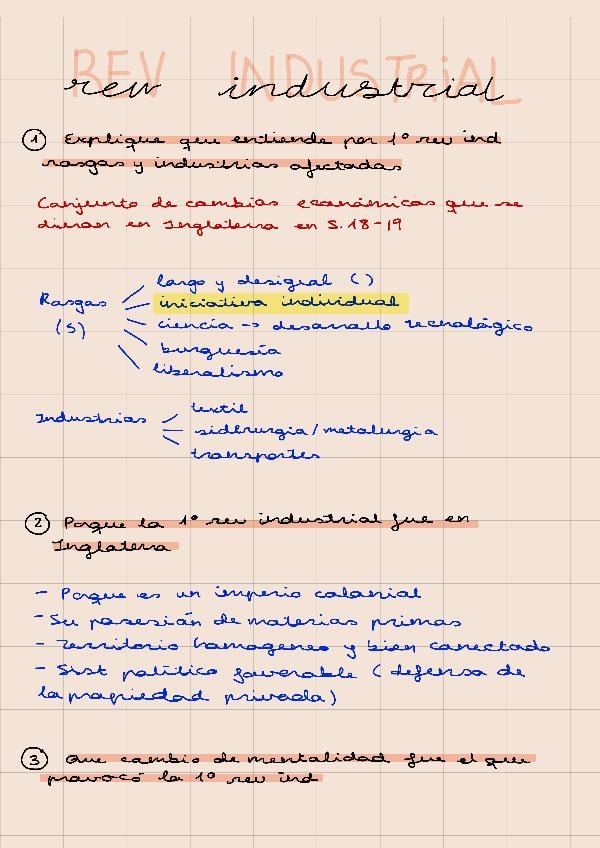 REV INDUSTRIAL
rev industrial
1 Explique que entiende por 1º rev ind
rasgos y industrias afectadas
Conjunto de cambios económicos que se
dieron en Inglaterra en S. 18-19
largo y desigual ( )
Rasgos
iniciativa individual
(5)
ciencia → desarrollo tecnológico
burguesía
liberalismo
textil
Industrias
siderurgia/metalurgia
transportes
2 Porque la 1º rev industrial fue en
Inglaterra
- Porque es un imperio colonial
- Su posesión de materias primas
- Territorio homogeneo y bien conectado
- Sist político favorable (defensa de
la propiedad privada)
3 Que cambio de mentalidad fue el que
provocó la 1º rev ind